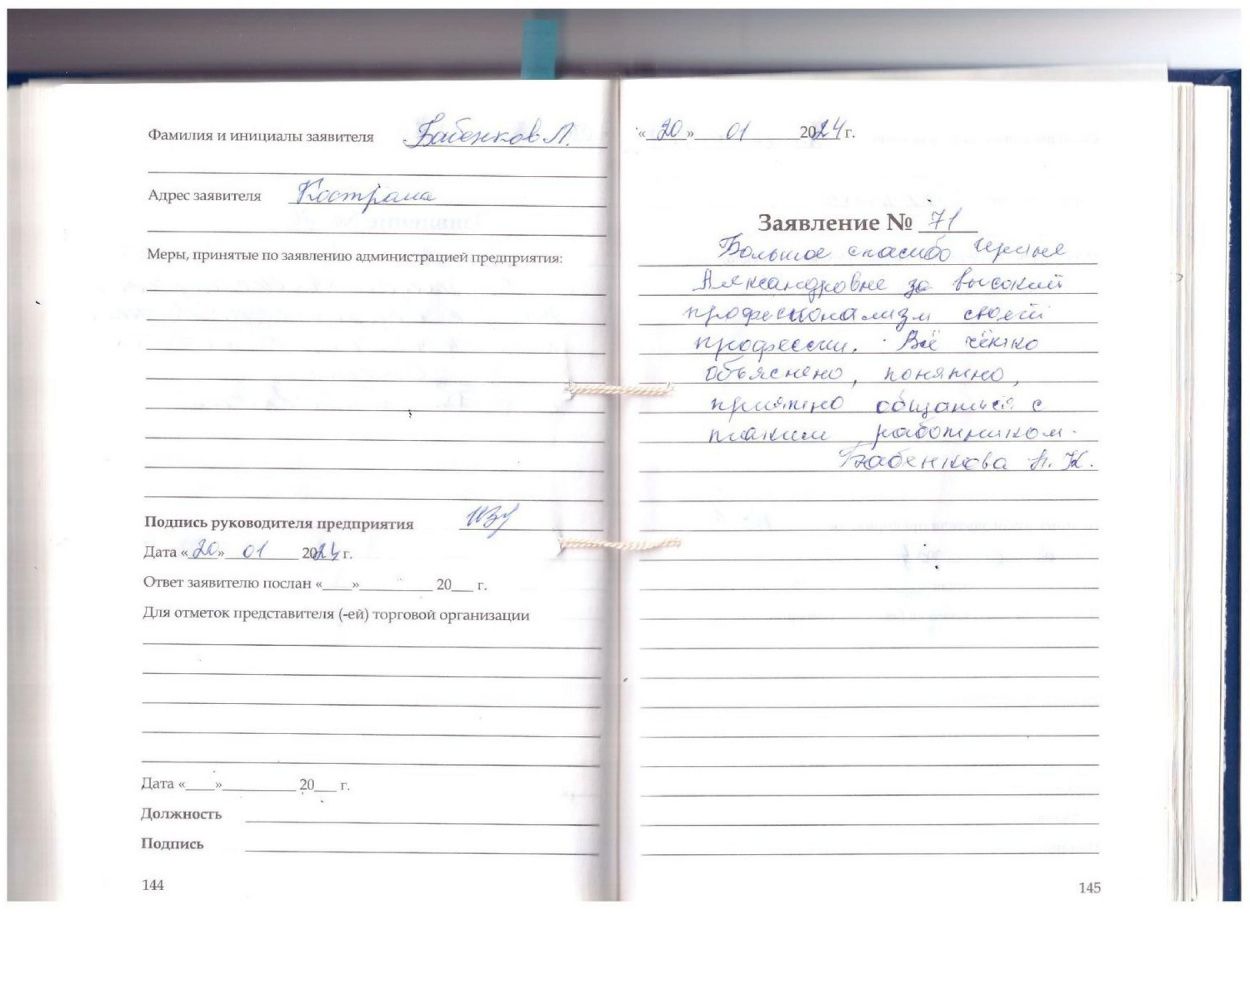 Фамилия и инициалы заявителя Бабенков Л.
Адрес заявителя Кострома
Меры, принятые по заявлению администрацией предприятия:
Подпись руководителя предприятия
Дата «20» 01 2024 г.
Ответ заявителю послан «___»_________ 20___ г.
Для отметок представителя (-ей) торговой организации
Дата «____»__________ 20___ г.
Должность
Подпись
144
«20» 01 2024 г.
Заявление № 71
Большое спасибо Ирине
Александровне за высокий
профессионализм своей
профессии. Всё чётко
объяснено, понятно,
приятно общаться с
таким работником.
Бабенкова Н. К.
145